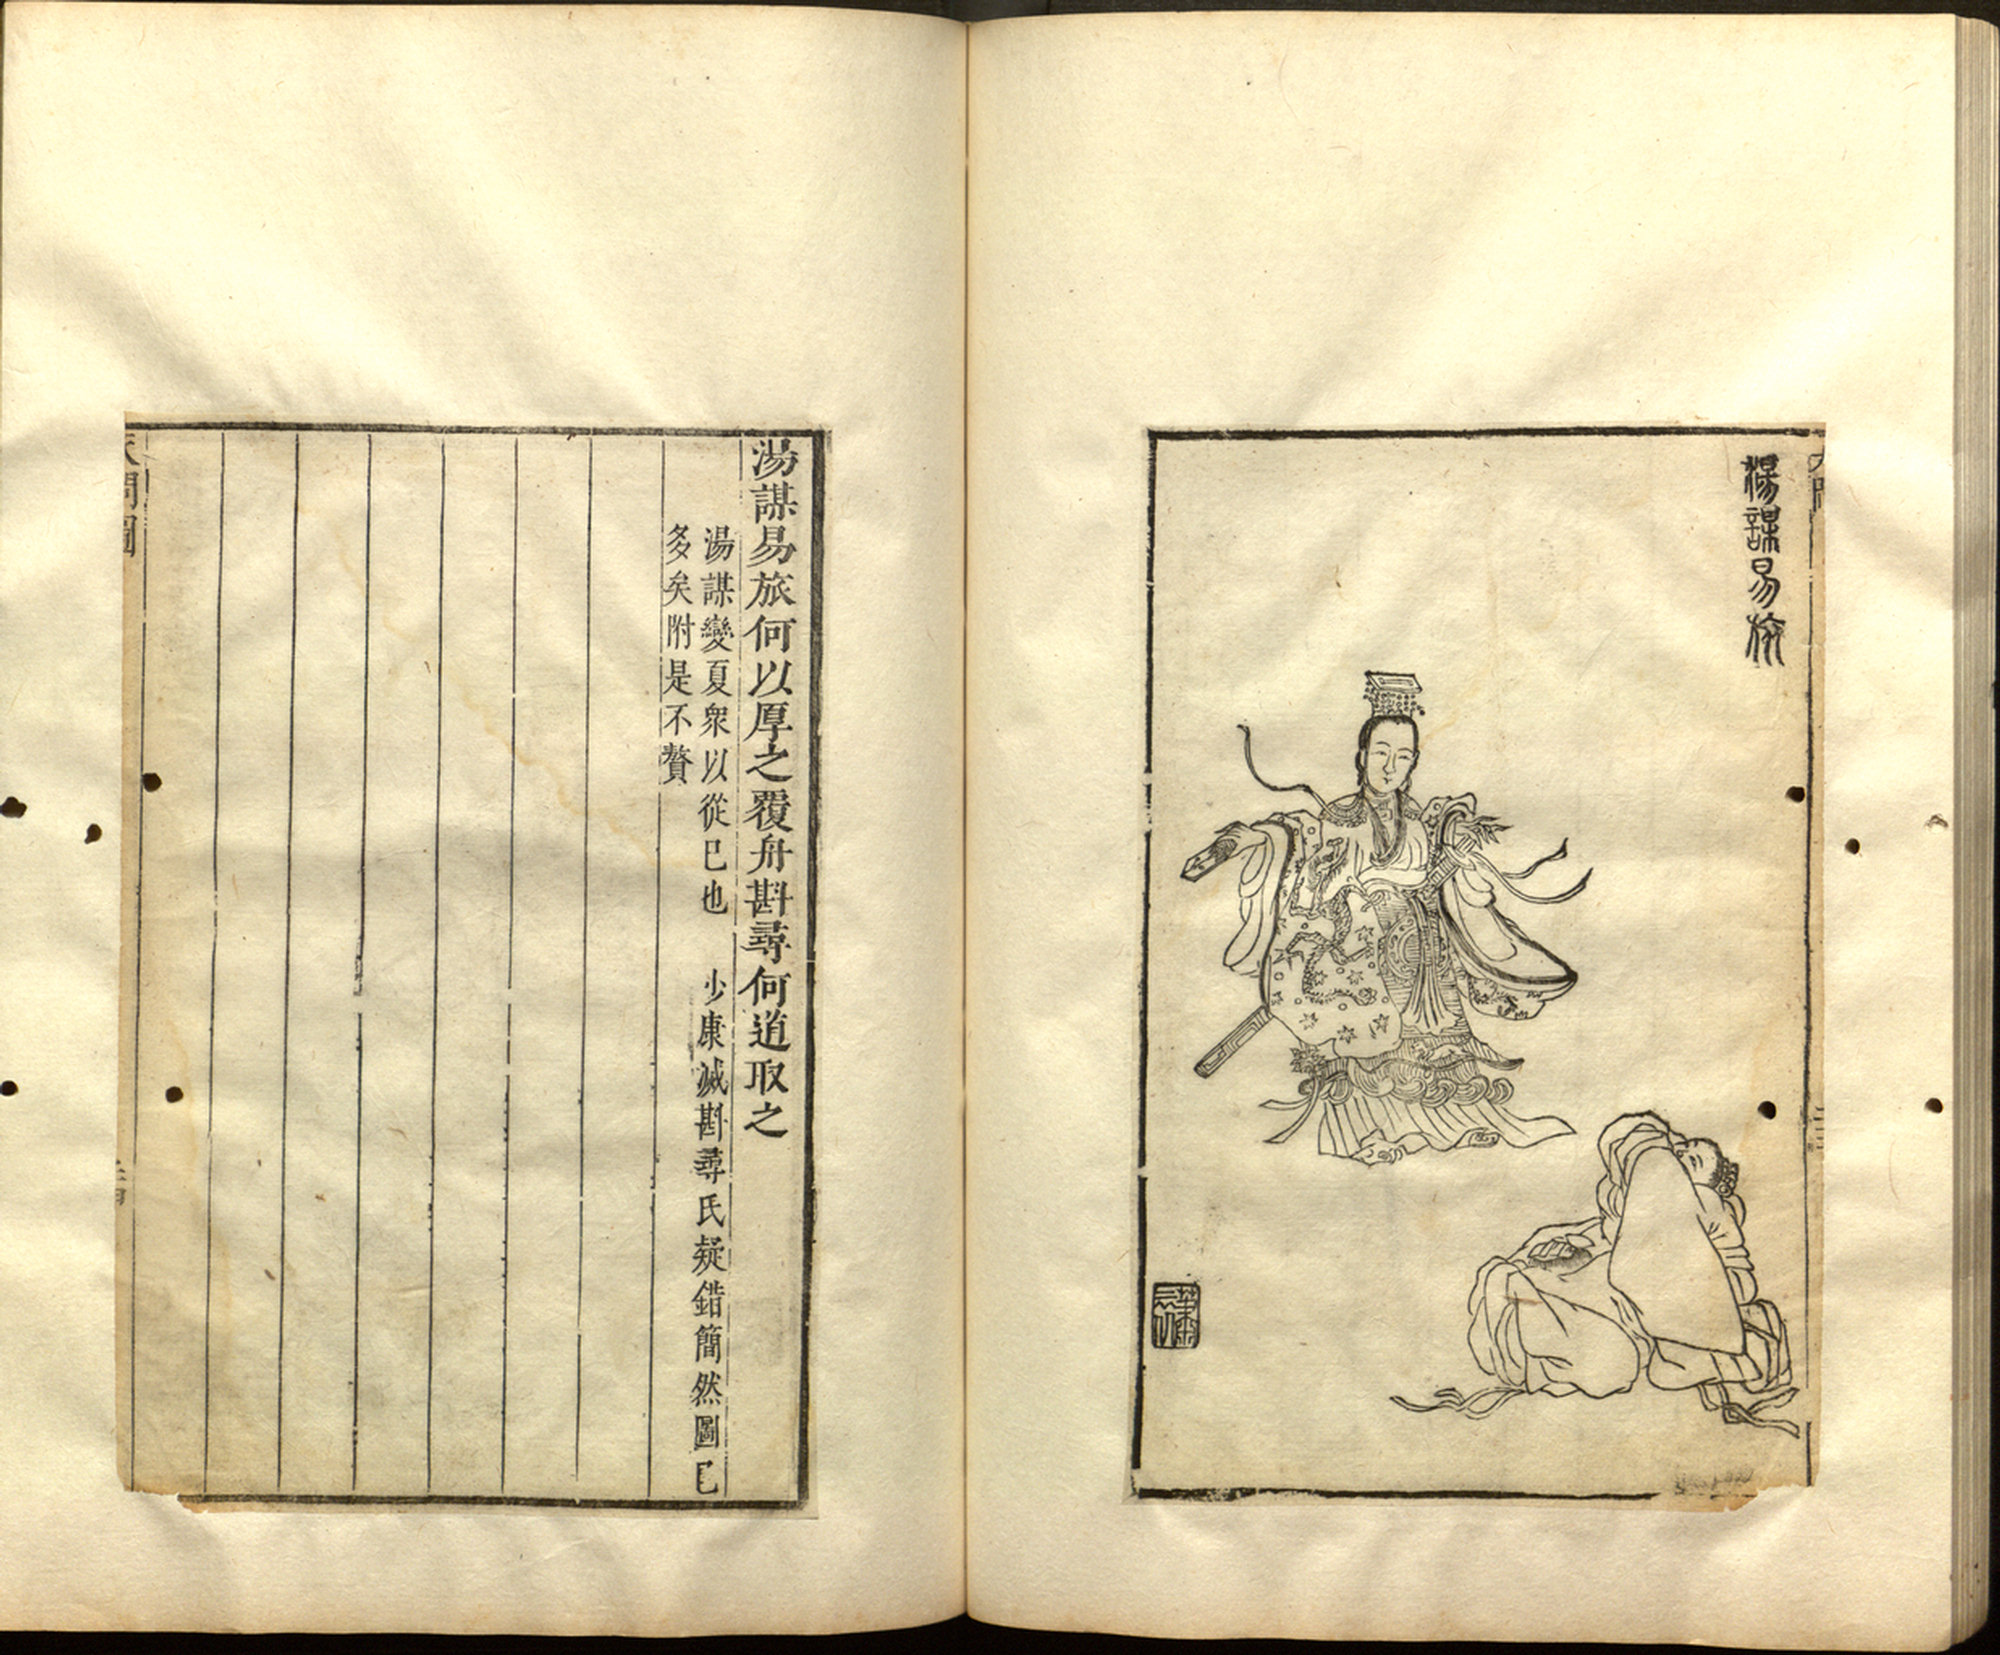 湯謀易旅
湯謀易旅何以厚之覆舟斟尋何道取之
湯謀變夏衆以從已也　少康滅斟尋氏疑錯簡然圖已
多矣附是不贅
天問圖